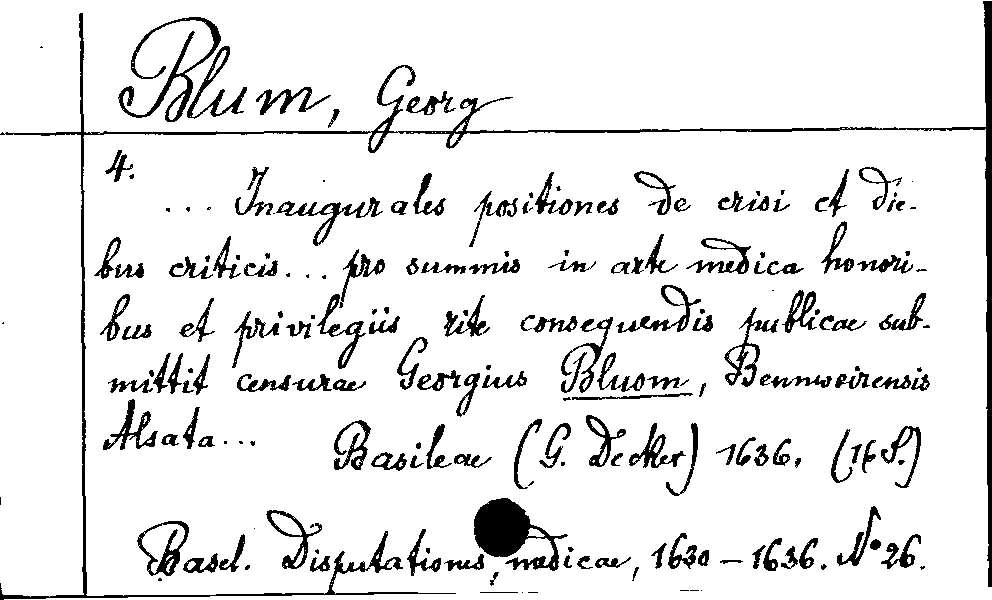 Blum, Georg
4.
... Inaugurales positiones de crisi et die-
bus criticis... pro summis in arte medica honori-
bus et privilegiis rite consequendis publicae sub-
mittit censurae Georgius Bluom, Bennweirensis
Alsata...
Basileae (G. Decker) 1636. (16 S.)
Basel. Disputationes medicae, 1630-1636. No 26.